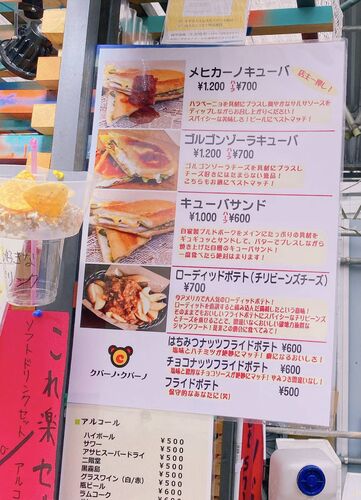 メヒカーノキューバ
店主一押し!
¥1.200 ハーフ¥700
ハラペーニョを具材にプラスし爽やかなサルサソースを
ディップしながらお召し上がりください!
スパイシーな美味しさ!ビールにベストマッチ!
ゴルゴンゾーラキューバ
¥1.200 ハーフ¥700
ゴルゴンゾーラチーズを具材にプラスし
チーズ好きにはたまらない逸品!
こちらもお酒にベストマッチ!
キューバサンド
¥1.000 ハーフ¥600
自家製プルドポークをメインにたっぷりの具材を
ギュギュッとサンドして、バターでプレスしながら
焼き上げた自慢のキューバサンド!
一度食べたら絶対はまります!
ローディッドポテト(チリビーンズチーズ)
¥700
今アメリカで大人気のローディッドポテト!
はちみつナッツフライドポテト ¥600
塩味とハチミツが絶妙にマッチ!癖になるおいしさ!
チョコナッツフライドポテト ¥600
フライドポテト ¥500
保守的なあなたに(笑)
クバーノ・クバーノ
アルコール
ハイボール ¥500
サワー ¥500
アサヒスーパードライ ¥500
二階堂 ¥500
黒霧島 ¥500
グラスワイン(白/赤) ¥500
瓶ビール
ラムコーク
これ楽セ
ソフトドリンクセット
アルコ